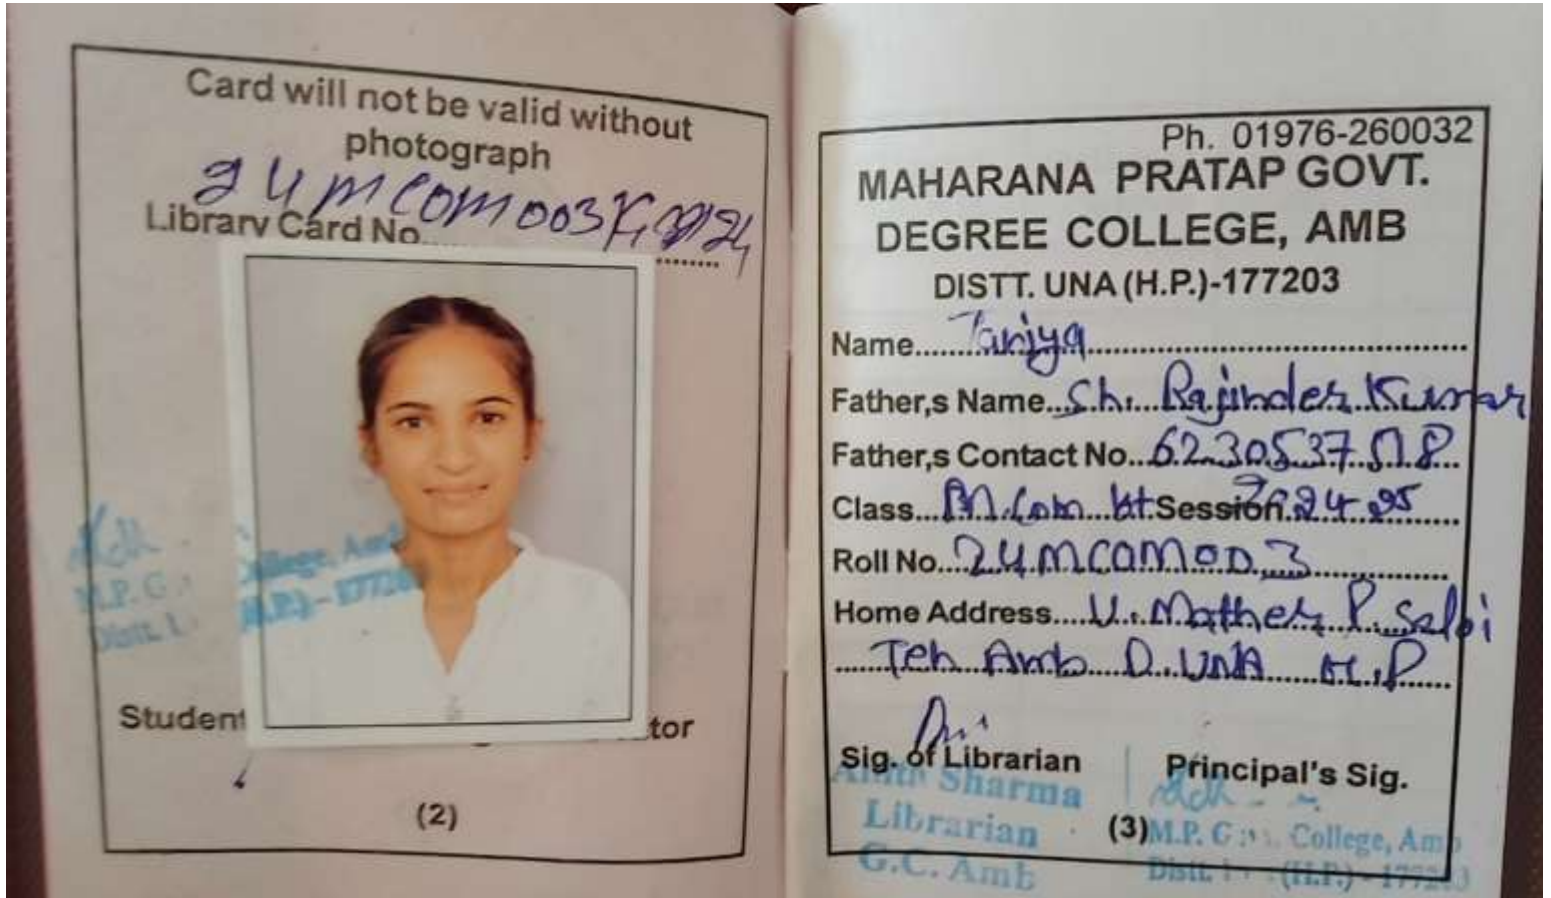 Card will not be valid without
photograph
Library Card No. 24mcom003
Student
tor
(2)
Ph. 01976-260032
MAHARANA PRATAP GOVT.
DEGREE COLLEGE, AMB
DISTT. UNA (H.P.)-177203
Name Taniya
Father,s Name Sh. Rajinder Kumar
Father,s Contact No. 62305375
Class M.Com Session 2024-25
Roll No. 24MCOM003
Home Address V. P. 
Teh Amb D. UNA H.P
Sig. of Librarian Principal's Sig.
Sharma
Librarian
G.C. Amb
(3)
M.P. G College, Amb
Distt. (H.P.) - 177203
College, Amb
M.P. G
(H.P.) - 17720
Distt.